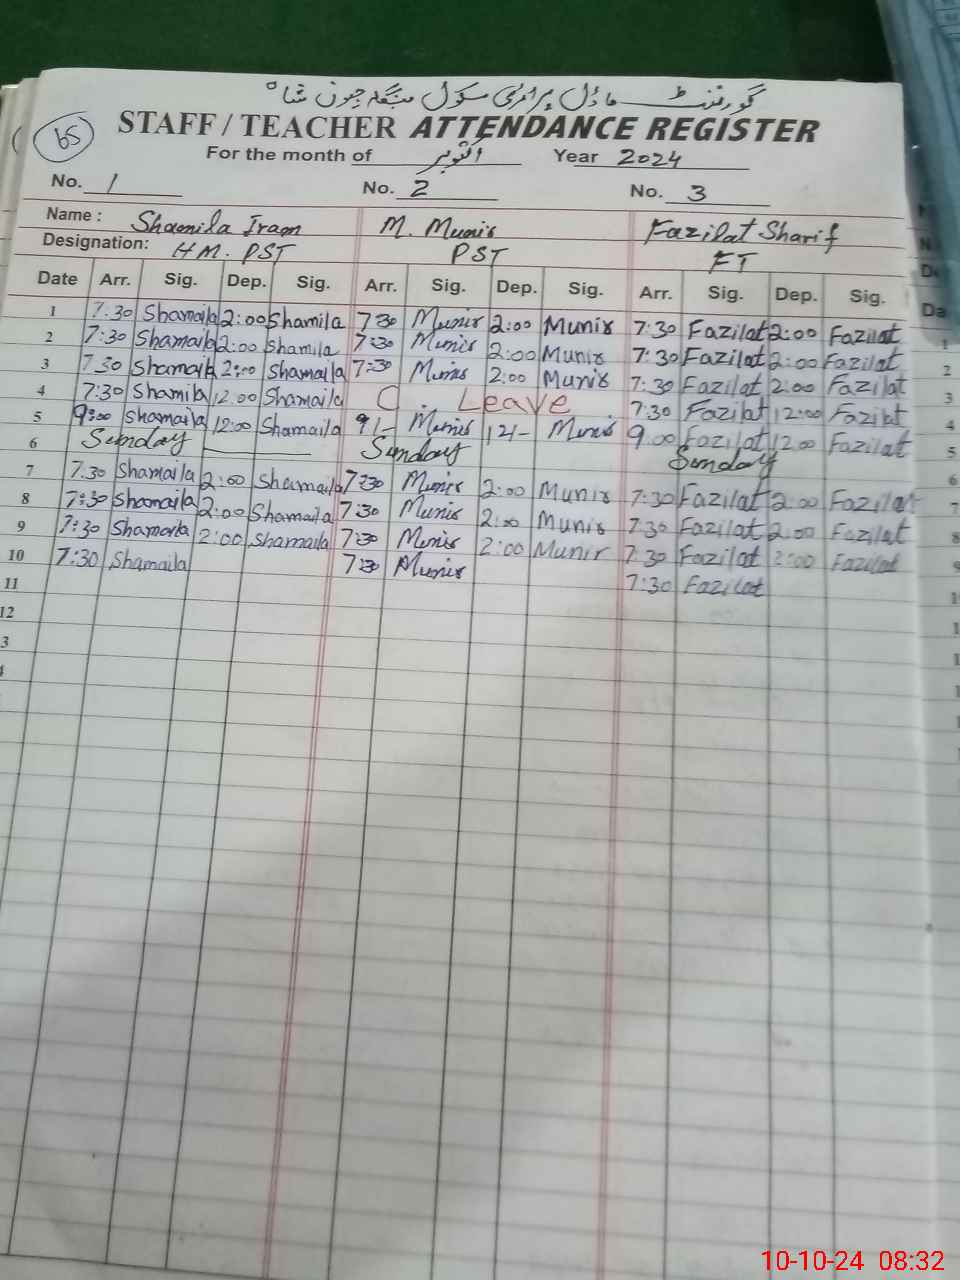 گورنمنٹ ماڈل پرائمری سکول جیون شاہ
65
STAFF / TEACHER ATTENDANCE REGISTER
For the month of اکتوبر Year 2024
No. 1 No. 2 No. 3
Name : Shamila Iram M. Munir Fazilat Sharif
Designation: HM. PST PST FT
Date Arr. Sig. Dep. Sig. Arr. Sig. Dep. Sig. Arr. Sig. Dep. Sig.
1 7:30 Shamaila 2:00 Shamila 7:30 Munir 2:00 Munir 7:30 Fazilat 2:00 Fazilat
2 7:30 Shamaila 2:00 Shamila 7:30 Munir 2:00 Munir 7:30 Fazilat 2:00 Fazilat
3 7:30 Shamaila 2:00 Shamaila 7:30 Munir 2:00 Munir 7:30 Fazilat 2:00 Fazilat
4 7:30 Shamila 12:00 Shamaila C. Leave 7:30 Fazilat 12:00 Fazilat
5 9:00 Shamaila 12:00 Shamaila 9/- Munir 12/- Munir 9:00 Fazilat 12:00 Fazilat
6 Sunday Sunday Sunday
7 7:30 Shamaila 2:00 Shamaila 7:30 Munir 2:00 Munir 7:30 Fazilat 2:00 Fazilat
8 7:30 Shamaila 2:00 Shamaila 7:30 Munir 2:00 Munir 7:30 Fazilat 2:00 Fazilat
9 7:30 Shamaila 2:00 Shamaila 7:30 Munir 2:00 Munir 7:30 Fazilat 2:00 Fazilat
10 7:30 Shamaila 7:30 Munir 7:30 Fazilat
11
12
3
10-10-24 08:32